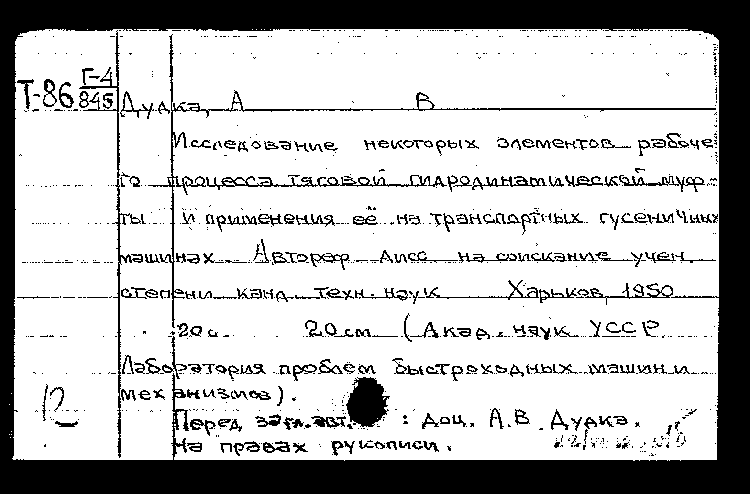 Т-86 Г-4/845
Дудка, А В
Исследование некоторых элементов рабоче
го процесса тяговой гидродинамической муф-
ты и применения её на транспортных гусеничных
машинах. Автореф дисс на соискание учен.
степени канд. техн. наук Харьков, 1950
20 с. 20 см (Акад. наук УССР
Лаборатория проблем быстроходных машин и
механизмов).
12
Перед загл. авт. : доц. А.В. Дудка.
На правах рукописи.